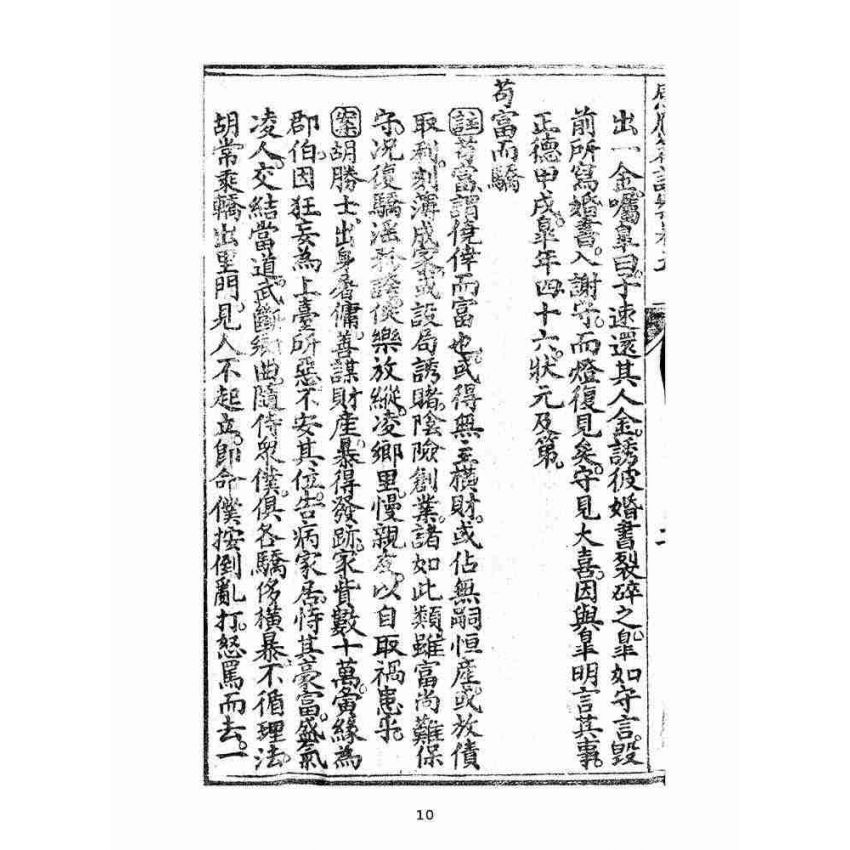 出一金。囑臯曰。子速還其人金。誘彼婚書裂碎之。臯如守言。毀
前所寫婚書。入謝守。而燈復見矣。守見大喜。因與臯明言其事。
正德甲戌。臯年四十六。狀元及第。
苟富而驕
註苟富。謂僥倖而富也。或得無主橫財。或佔無嗣恒産。或放債
取利。刻薄成家。或設局誘賭。陰險創業。諸如此類。雖富尚難保
守。況復驕淫矜誇。從樂放縱。凌鄉里。慢親友。以自取禍患乎。
案胡勝士。出身書傭。善謀財産。暴得發跡。家貲數十萬。寅緣為
郡伯。因狂妄為上臺所惡。不安其位。告病家居。恃其豪富。盛氣
凌人。交結當道。武斷鄉曲。隨侍衆僕。俱各驕侈橫暴。不循理法。
胡常乘轎出里門。見人不起立。即命僕按倒亂打。怒罵而去。一
10